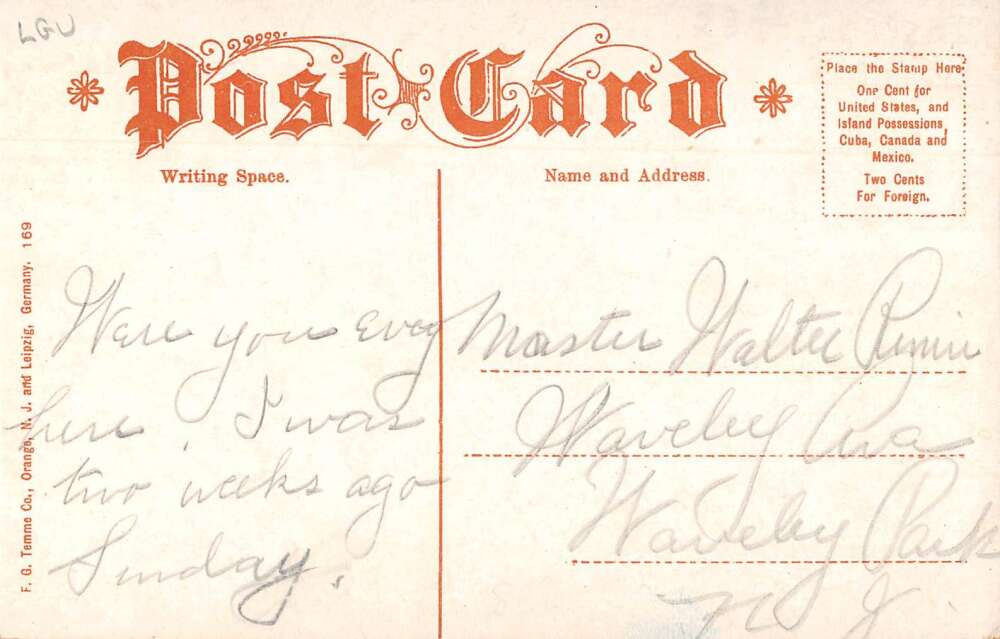 LGU
Post Card
Writing Space.
Name and Address.
Place the Stamp Here
One Cent for
United States, and
Island Possessions,
Cuba, Canada and
Mexico.
Two Cents
For Foreign.
F. G. Temme Co., Orange, N. J. and Leipzig, Germany. 169
Were you ever
here. I was
two weeks ago
Sunday.
Master Walter
Waverley Ave
Waverley Park
N J.